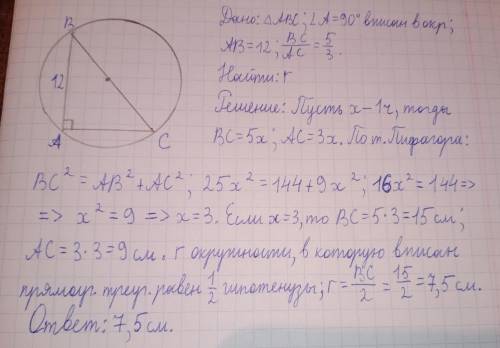 B
12
A
C
Дано: △ABC; ∠A=90° вписан в окр;
AB=12; BC/AC = 5/3.
Найти: r
Решение: Пусть x-1ч, тогды
BC=5x; AC=3x. По т. Пифагора:
BC²=AB²+AC²; 25x²=144+9x²; 16x²=144=>
=> x²=9 => x=3. Если x=3, то BC=5·3=15см;
AC=3·3=9см. r окружности, в которую вписан
прямоуг. треуг. равен 1/2 гипотенузы; r=BC/2=15/2=7,5см.
Ответ: 7,5см.